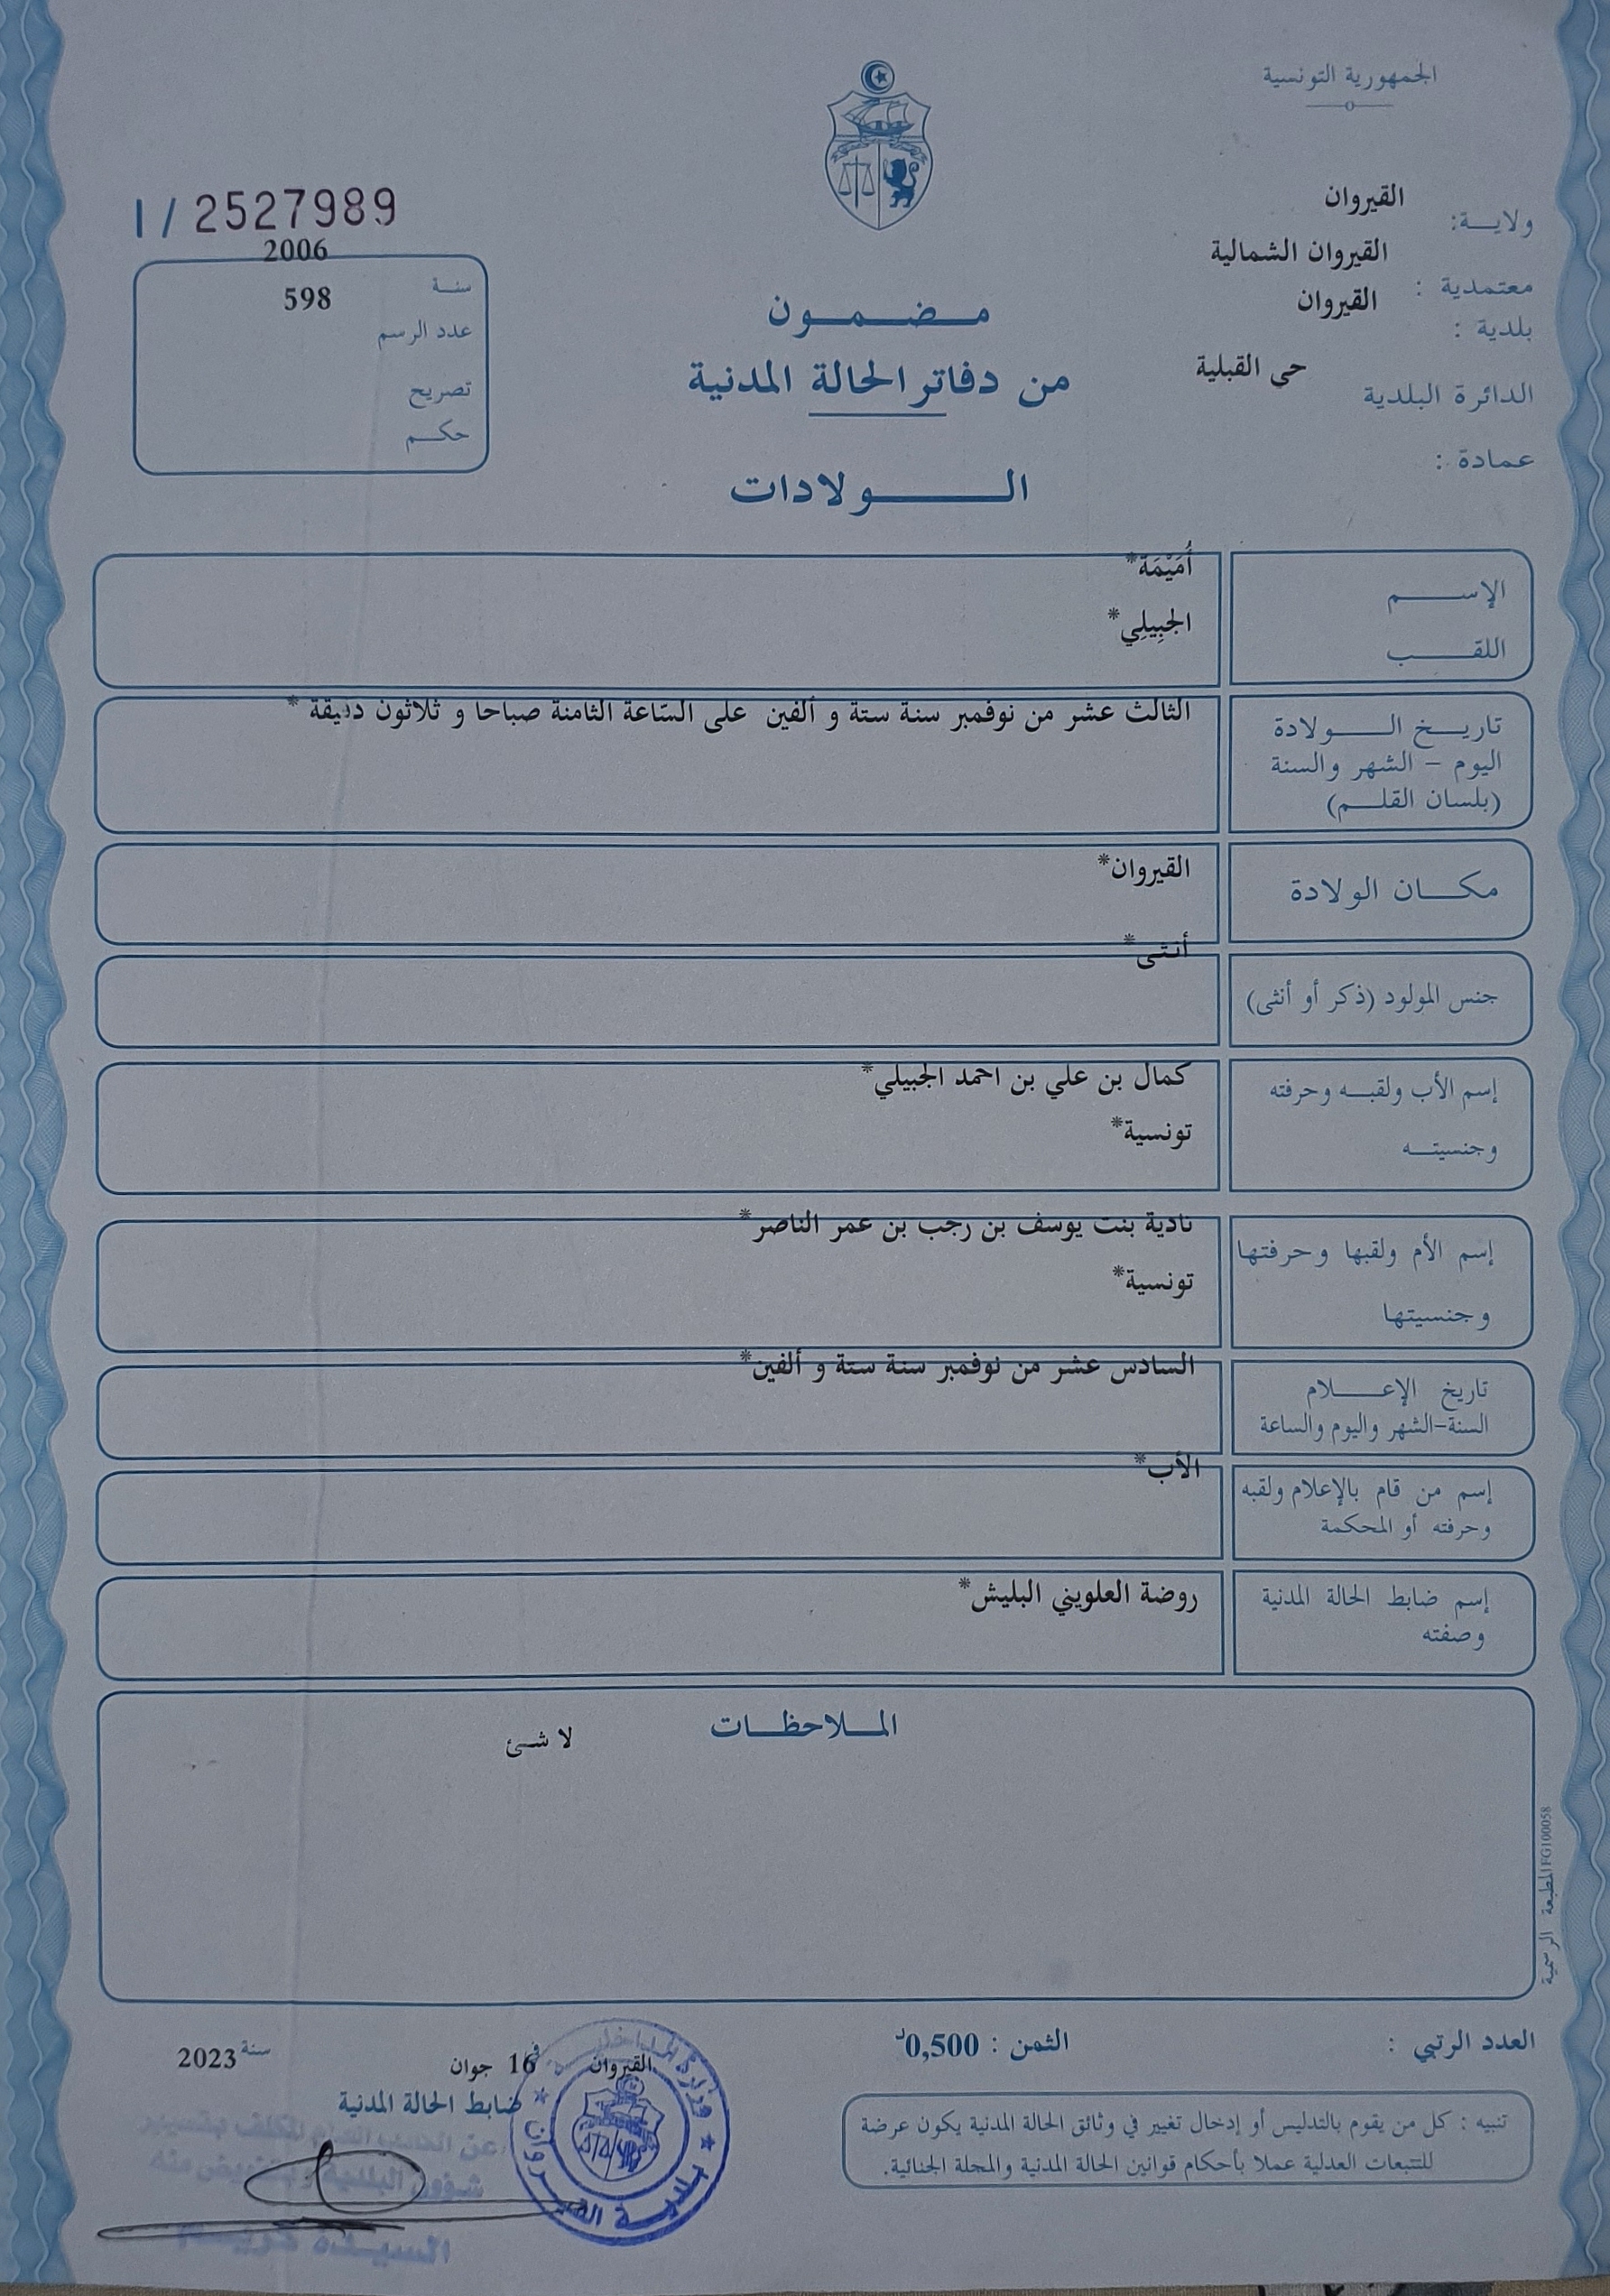 الجمهورية التونسية
ولايـــة: القيروان
معتمدية : القيروان الشمالية
بلدية : القيروان
الدائرة البلدية حى القبلية
عمادة :
مـــضـــمـــون
من دفاتر الحالة المدنية
الـــــولادات
I / 2527989
2006
سنـة
598
عدد الرسم
تصريح
حكـــم
الإســـــم
أُمَيْمَة*
اللقـــــب
الجبِيلِي*
تاريـــخ الـــــولادة
اليوم - الشهر والسنة
(بلسان القلـــم)
الثالث عشر من نوفمبر سنة ستة و ألفين على السّاعة الثامنة صباحا و ثلاثون دقيقة *
مكـــان الولادة
القيروان*
جنس المولود (ذكر أو أنثى)
أنثى*
إسم الأب ولقبـــه وحرفته
وجنسيتـــه
كمال بن علي بن احمد الجبيلي*
تونسية*
إسم الأم ولقبها وحرفتها
وجنسيتها
نادية بنت يوسف بن رجب بن عمر الناصر*
تونسية*
تاريخ الإعـــــلام
السنة-الشهر واليوم والساعة
السادس عشر من نوفمبر سنة ستة و ألفين*
إسم من قام بالإعلام ولقبه
وحرفته أو المحكمة
الأب*
إسم ضابط الحالة المدنية
وصفته
روضة العلويني البليش*
المـــلاحظـــات
لا شئ
المطبعة الرسمية FG100058
العدد الرتبي :
الثمن : 0,500د
القيروان في 16 جوان سنة 2023
ضابط الحالة المدنية
وزارة الداخلية
بلدية القيروان
تنبيه : كل من يقوم بالتدليس أو إدخال تغيير في وثائق الحالة المدنية يكون عرضة
للتتبعات العدلية عملا بأحكام قوانين الحالة المدنية والمجلة الجنائية.